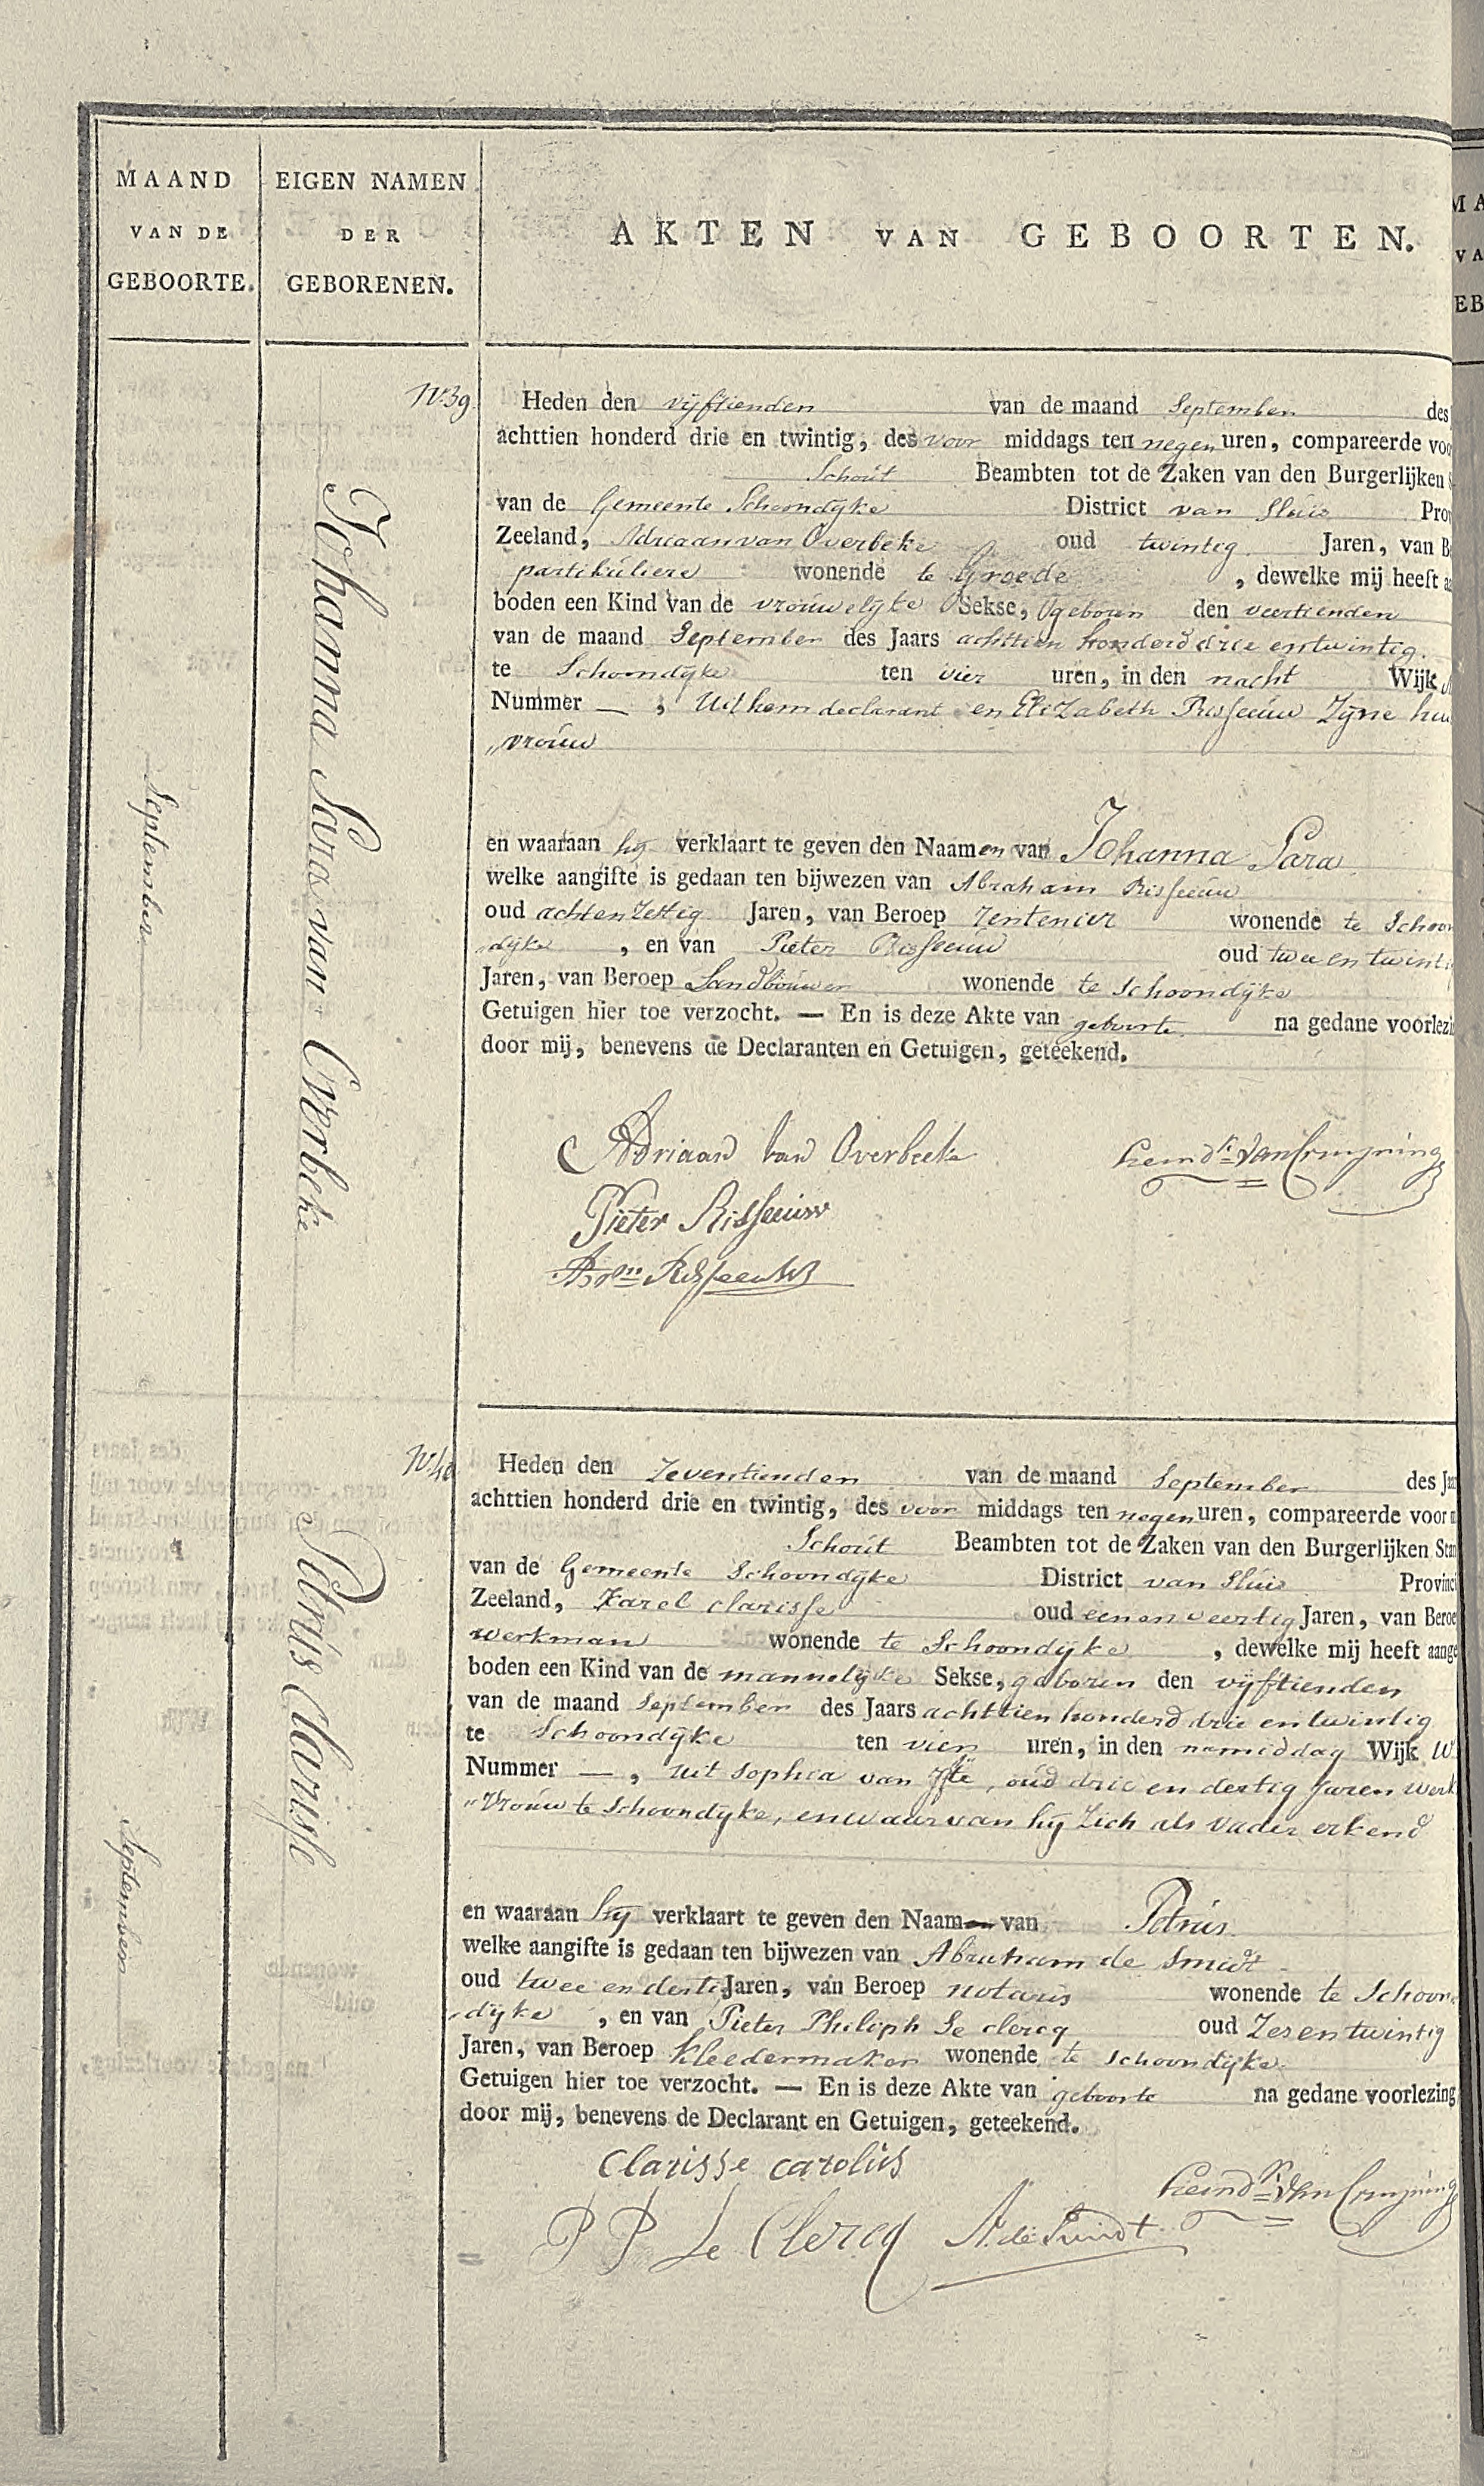 MAAND
VAN DE
GEBOORTE.
EIGEN NAMEN
DER
GEBORENEN.
AKTEN VAN GEBOORTEN.
September
Johanna Sara van Overbeke
N.39
Heden den vijftienden van de maand September des
achttien honderd drie en twintig, des voor middags ten negen uren, compareerde voo
Schout Beambten tot de Zaken van den Burgerlijken S
van de Gemeente Schoondijke District van Sluis Prov
Zeeland, Adriaan van Overbeke oud twintig Jaren, van B
partikuliere wonende te Groede , dewelke mij heeft aa
boden een Kind van de vrouwelijke Sekse, geboren den veertienden
van de maand September des Jaars achttien honderd drie en twintig.
te Schoondijke ten vier uren, in den nacht Wijk
Nummer — , Uit hem declarant en Elizabeth Risseeuw Zijne hu
„vrouw
en waaraan hij verklaart te geven den Naamen van Johanna Sara
welke aangifte is gedaan ten bijwezen van Abraham Risseeuw
oud achtenzestig Jaren, van Beroep Rentenier wonende te Schoon
„dijke , en van Pieter Risseeuw oud twee en twinti
Jaren, van Beroep Landbouwer wonende te Schoondijke
Getuigen hier toe verzocht. — En is deze Akte van geboorte na gedane voorlezi
door mij, benevens de Declaranten en Getuigen, geteekend.
Adriaan van Overbeeke
Pieter Risseeuw
Abrm Risseeuw
September
Petrus Clarisse
N.40
Heden den Zeventienden van de maand September des Jaar
achttien honderd drie en twintig, des voor middags ten negen uren, compareerde voor m
Schout Beambten tot de Zaken van den Burgerlijken Stan
van de Gemeente Schoondijke District van Sluis Provinci
Zeeland, Karel Clarisse oud een en veertig Jaren, van Beroe
werkman wonende te Schoondijke , dewelke mij heeft aange
boden een Kind van de mannelijke Sekse, geboren den vijftienden
van de maand September des Jaars achttien honderd drie en twintig
te Schoondijke ten vier uren, in den namiddag Wijk W
Nummer — , uit Sophia van , oud drie en dertig Jaren werk
„vrouw te Schoondijke, en waarvan hij Zich als vader erkend
en waaraan hij verklaart te geven den Naam — van Petrus
welke aangifte is gedaan ten bijwezen van Abraham de Smidt
oud twee en dertig Jaren, van Beroep notaris wonende te Schoon
„dijke , en van Pieter Philiph Le Clercq oud Zes en twintig
Jaren, van Beroep Kleedermaker wonende te Schoondijke.
Getuigen hier toe verzocht. — En is deze Akte van geboorte na gedane voorlezing
door mij, benevens de Declarant en Getuigen, geteekend.
Clarisse carolus
P P Le Clercq A. de Smidt